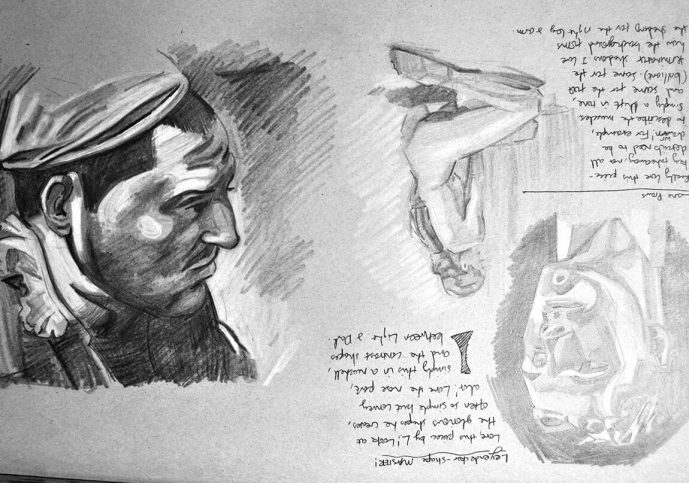 Leyendecker - shape MASTER!
Love this piece by L! Look at
the glorious shapes he creates,
often so simple but convey
alot! Love the nose part,
simply this in a nutshell,
and the contrast shapes
between Light & Dark!
Really love this piece-
key takeaway, not all
details need to be
drawn! For example,
to describe the muscles
simply a shift in tone,
and same for the feet
(brilliant). Same for the
shadows I love
how the background forms
the shadows for the right leg & arm